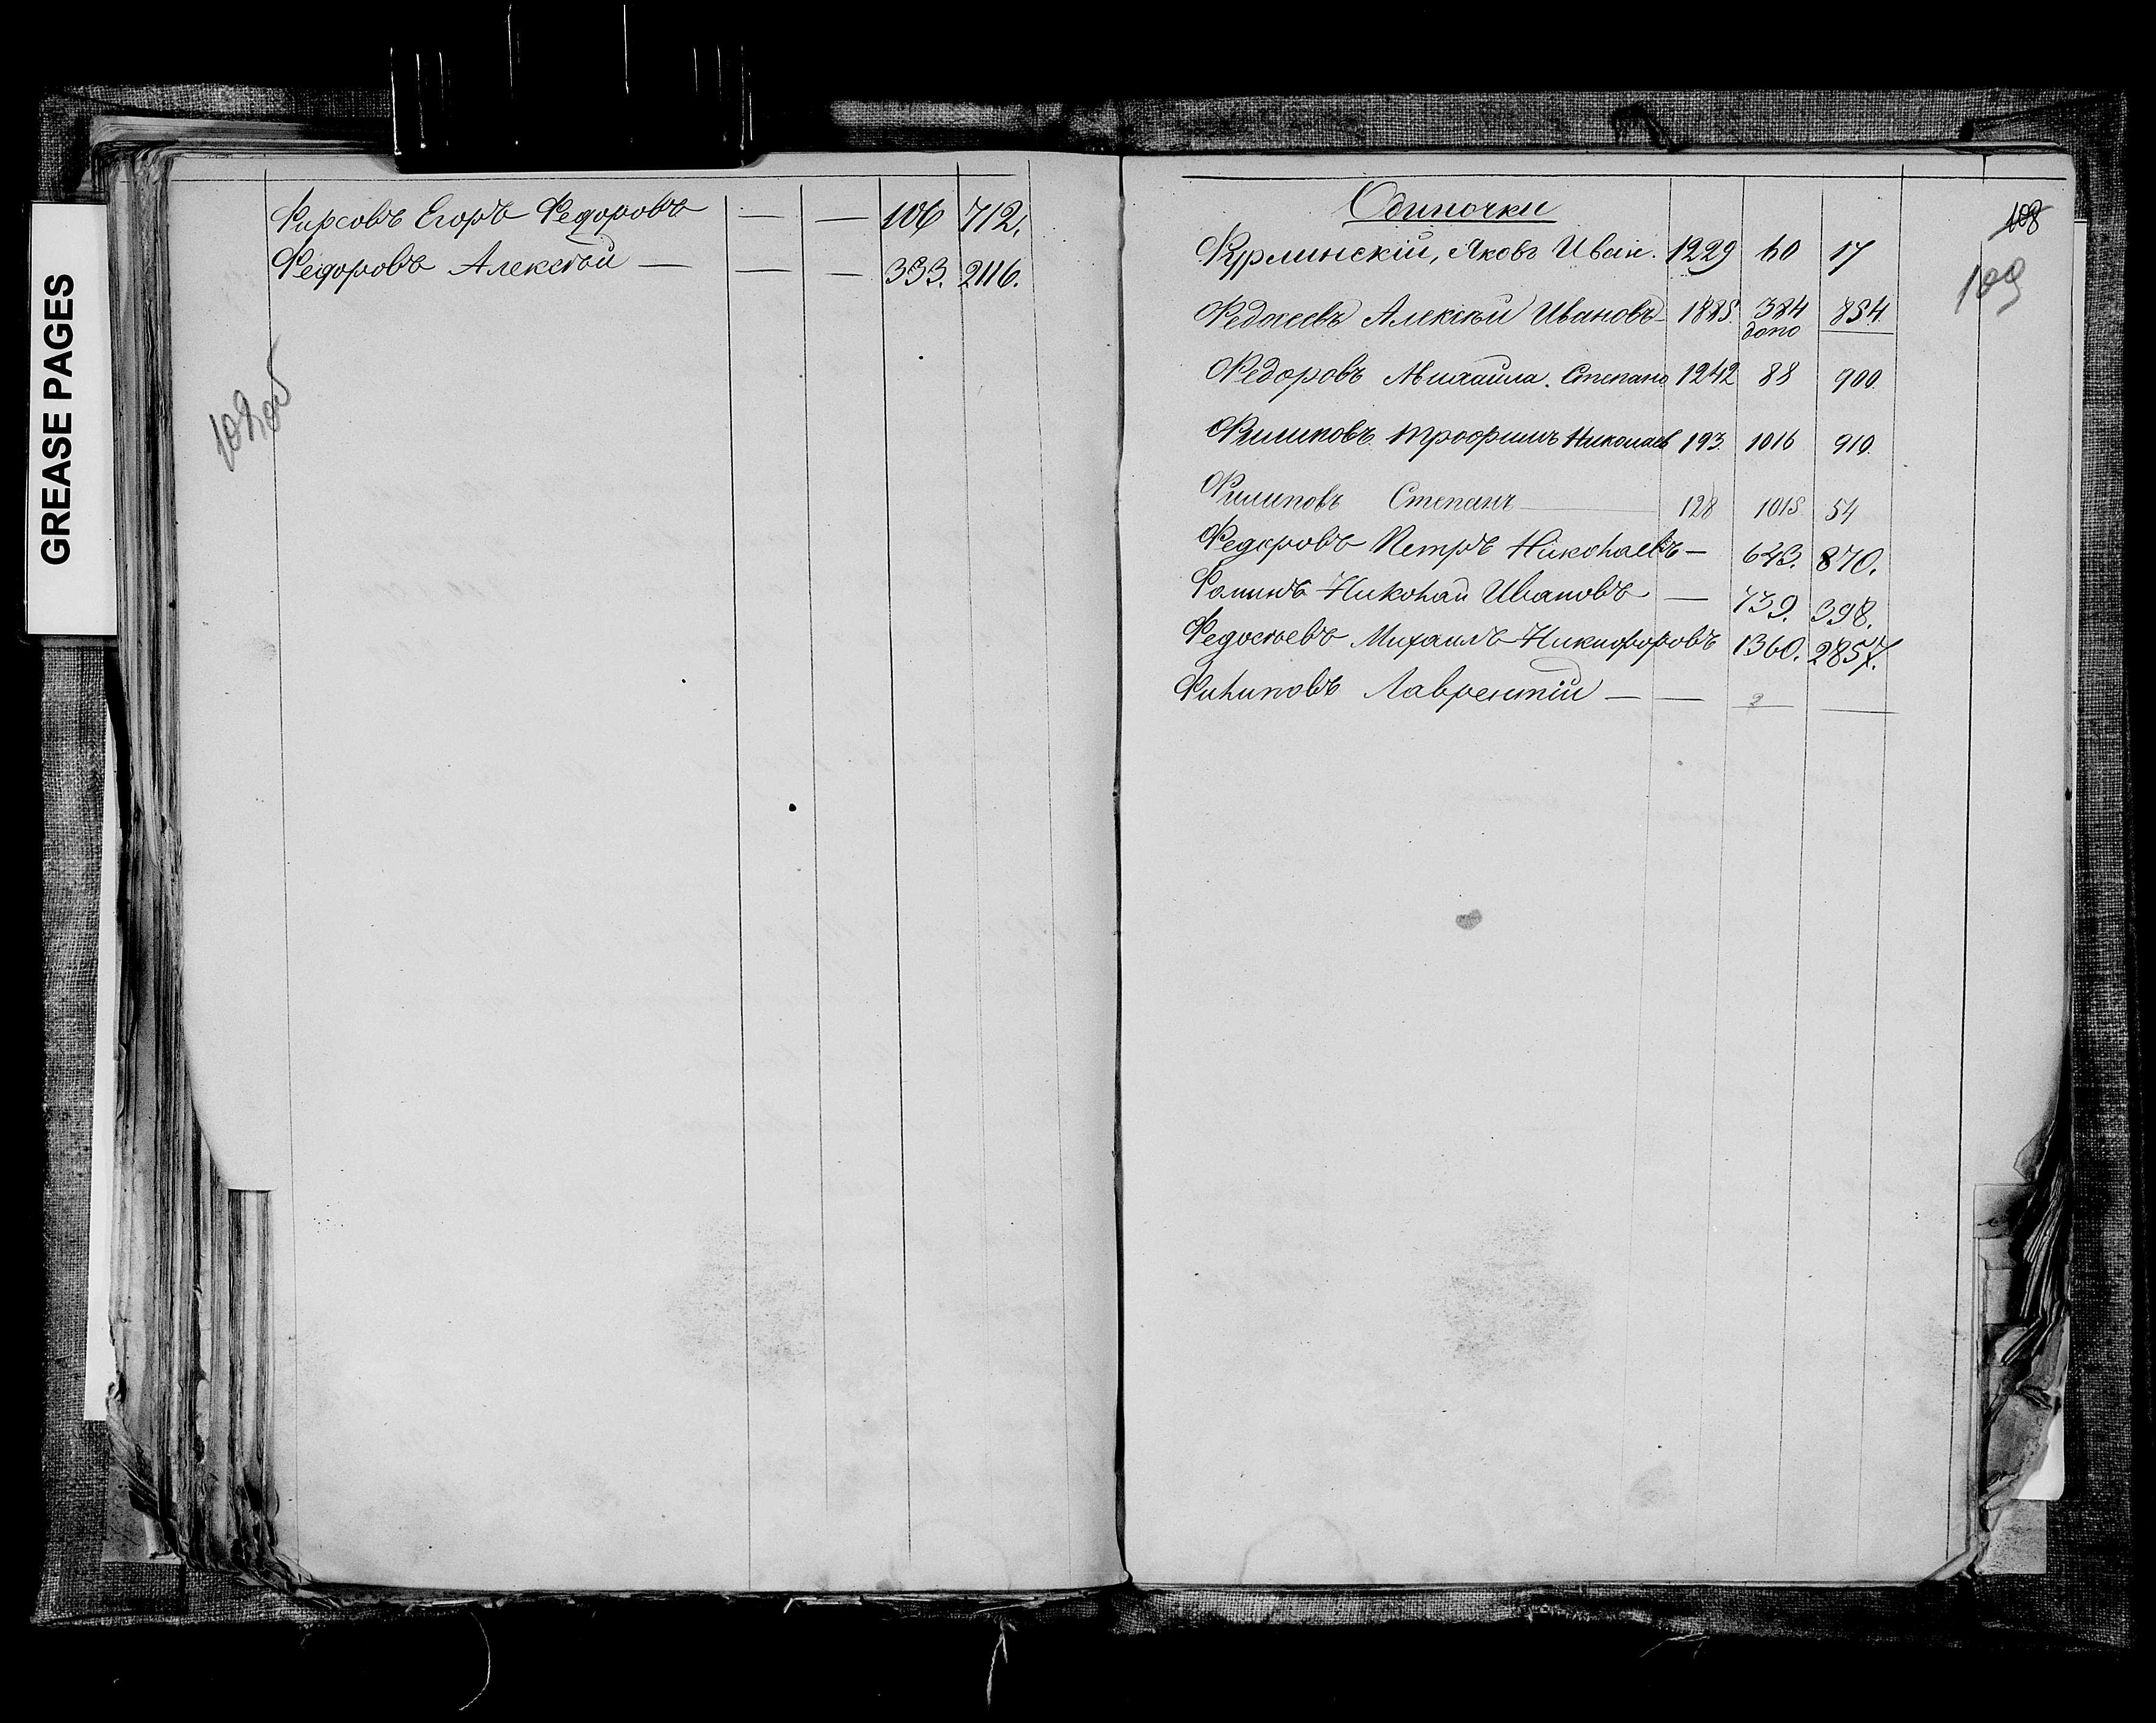 GREASE PAGES
Фирсовъ Егоръ Федоровъ — — 106 712.
Федоровъ Алексѣй — — — 333. 2116.
108об
Одиночки
108
109
Фурлинскій, Яковъ Иван. 1229 60 17
Федосеевъ Алексѣй Ивановъ 1885. 384 854
допо
Федоровъ Михаила Степано 1242 88 900
Филиповъ Трофимъ Николаев 193 1016 910
Филиповъ Степанъ — 128 1015 54
Федоровъ Петръ Николаевъ — 643. 870.
Фоминъ Николай Ивановъ — 739. 398.
Федосѣевъ Михаилъ Никифоровъ 1360. 2857.
Филиповъ Лаврентій — — ? —